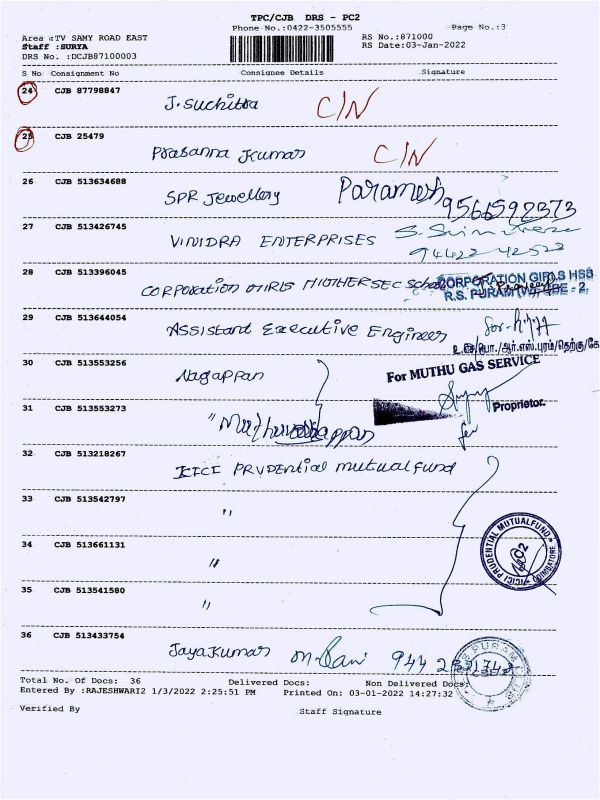 TPC/CJB DRS - PC2
Phone No.:0422-3505555 Page No.:3
Area :TV SAMY ROAD EAST RS No.:871000
Staff :SURYA RS Date:03-Jan-2022
DRS No. :DCJB87100003
S No Consignment No Consignee Details Signature
24 CJB 87798847 J. Suchitra C/N
25 CJB 25479 Prasanna Kumar C/N
26 CJB 513634688 SPR Jewellery Paramesh 9566592373
27 CJB 513426745 VINIDRA ENTERPRISES
28 CJB 513396045 CORPORATION GIRLS HIGHER SEC School CORPORATION GIRLS HSS
R.S. PURAM
29 CJB 513644054 Assistant Executive Engineer
30 CJB 513553256 Nagappan For MUTHU GAS SERVICE
31 CJB 513553273 " Proprietor.
32 CJB 513218267 ICICI PRUDENtial mutual fund
33 CJB 513542797 "
34 CJB 513661131 " ICICI PRUDENTIAL MUTUALFUND COIMBATORE
35 CJB 513541580 "
36 CJB 513433754 Jayakumar M. Rani
Total No. Of Docs: 36 Delivered Docs: Non Delivered Docs:
Entered By :RAJESHWARI2 1/3/2022 2:25:51 PM Printed On: 03-01-2022 14:27:32
Verified By Staff Signature